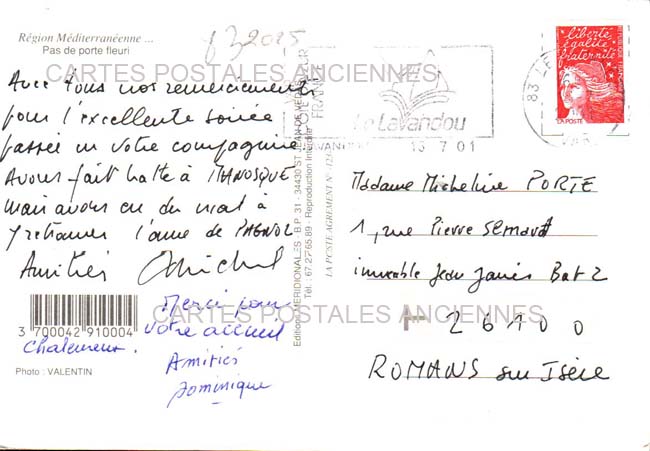 Région Méditerranéenne ...
Pas de porte fleuri
Avec tous nos remerciements
pour l'excellente soirée
passée en votre compagnie
Avons fait halte à MANOSQUE
mais avons eu du mal à
y retrouver l'âme de PAGNOL
Amitiés Michel
3 700042 910004
Merci pour
votre accueil
Chaleureux.
Amitiés
Dominique
Photo : VALENTIN
83 2025
CARTES POSTALES ANCIENNES
Le Lavandou
13 7 01
83 LE
VAR
liberté
égalité
fraternité
LA POSTE
Editions MERIDIONALES - B.P. 31 - 34430 ST JEAN DE VEDAS
Tél. 67.27.65.89 - Reproduction Interdite
LA POSTE AGREMENT N°
Madame Micheline PORTE
1, rue Pierre Semard
immeuble Jean Janis Bat 2
CARTES POSTALES ANCIENNES
26100
ROMANS sur Isère